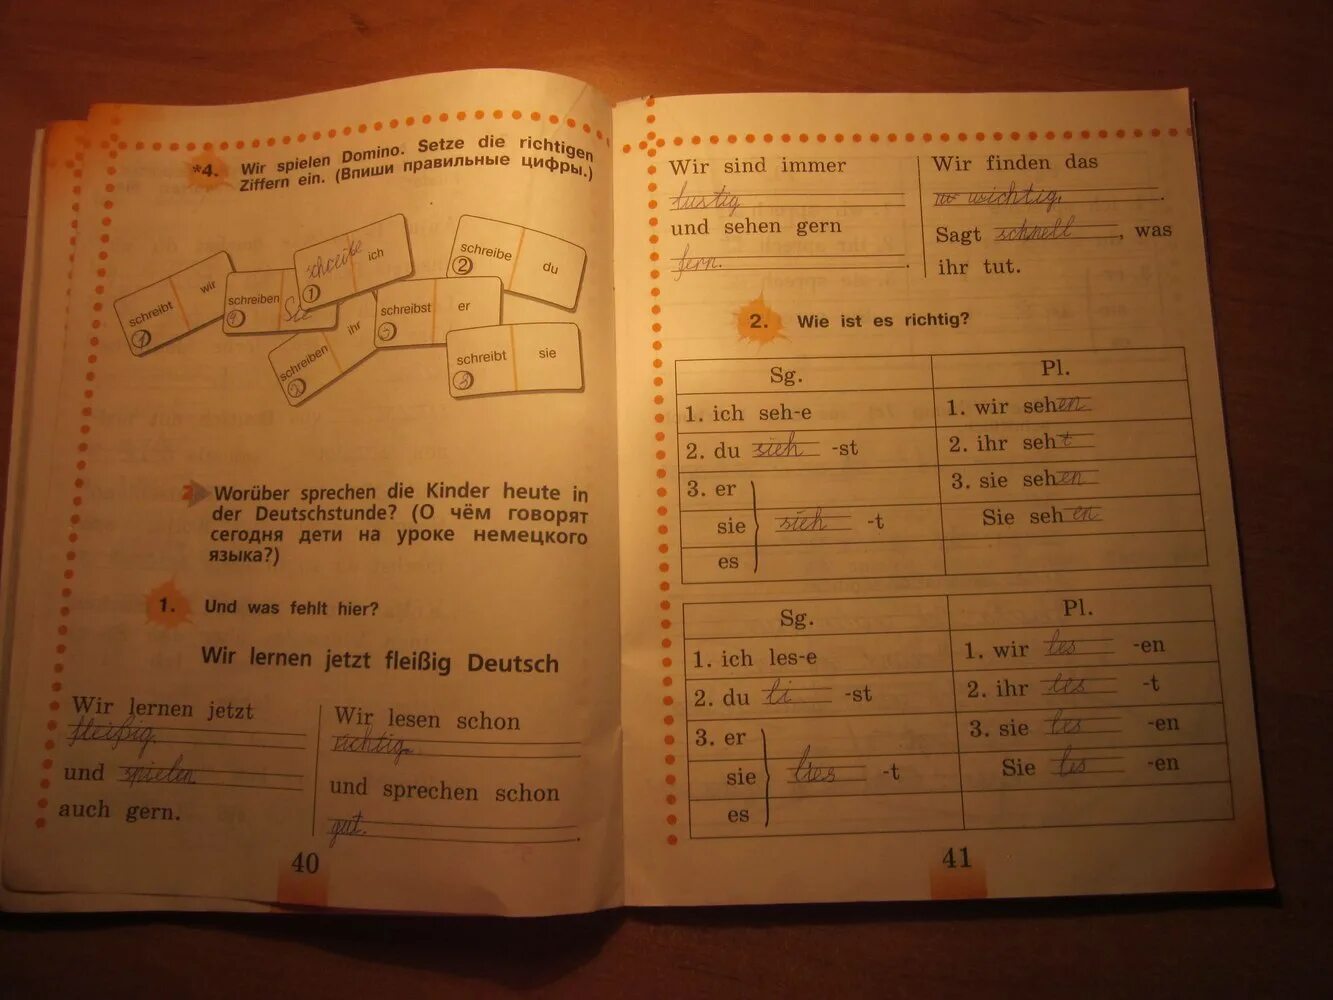 *4. Wir spielen Domino. Setze die richtigen
Ziffern ein. (Впиши правильные цифры.)
schreibt wir
schreiben Sie
schreibe ich
1
schreibe du
2
schreiben ihr
2
schreibst er
3
schreibt sie
3
2 Worüber sprechen die Kinder heute in
der Deutschstunde? (О чём говорят
сегодня дети на уроке немецкого
языка?)
1. Und was fehlt hier?
Wir lernen jetzt fleißig Deutsch
Wir lernen jetzt
fleißig
und spielen
auch gern.
Wir lesen schon
richtig
und sprechen schon
gut.
40
Wir sind immer
lustig
und sehen gern
fern.
Wir finden das
wichtig.
Sagt schnell, was
ihr tut.
2. Wie ist es richtig?
Sg. Pl.
1. ich seh-e 1. wir sehen
2. du sieh -st 2. ihr seht
3. er 3. sie sehen
sie sieh -t Sie sehen
es
Sg. Pl.
1. ich les-e 1. wir les -en
2. du li -st 2. ihr les -t
3. er 3. sie les -en
sie lies -t Sie les -en
es
41